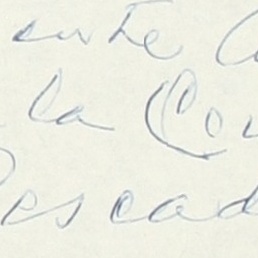 ente
la Co
escad